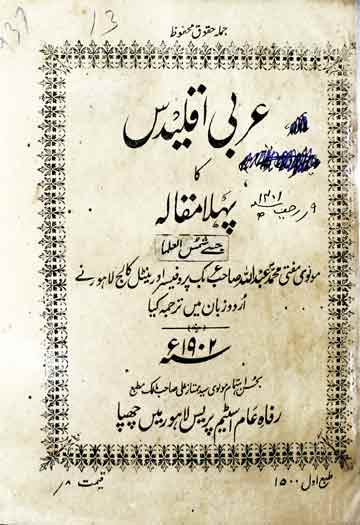 جملہ حقوق محفوظ
13
937
عربی اقلیدس
کا
پہلا مقالہ
۹ رجب ۱۳۰۱
جسے شمس العلما
مولوی مفتی محمد عبداللہ صاحب پروفیسر اورینٹل کالج لاہور نے
اُردو زبان میں ترجمہ کیا
سنہ ۱۹۰۲ء
بحسن اہتمام مولوی سید ممتاز علی صاحب مالک مطبع
رفاہ عام اسٹیم پریس لاہور میں چھپا
طبع اول ۱۵۰۰
قیمت ۸/